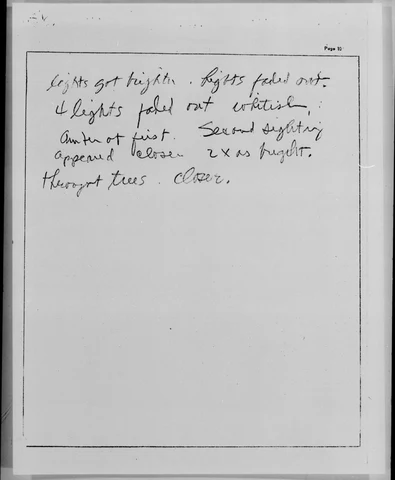 Page 10
lights got brighter. lights faded out.
4 lights faded out whitish,
Amber at first. Second sighting
appeared closer 2 x as bright.
through trees. closer.